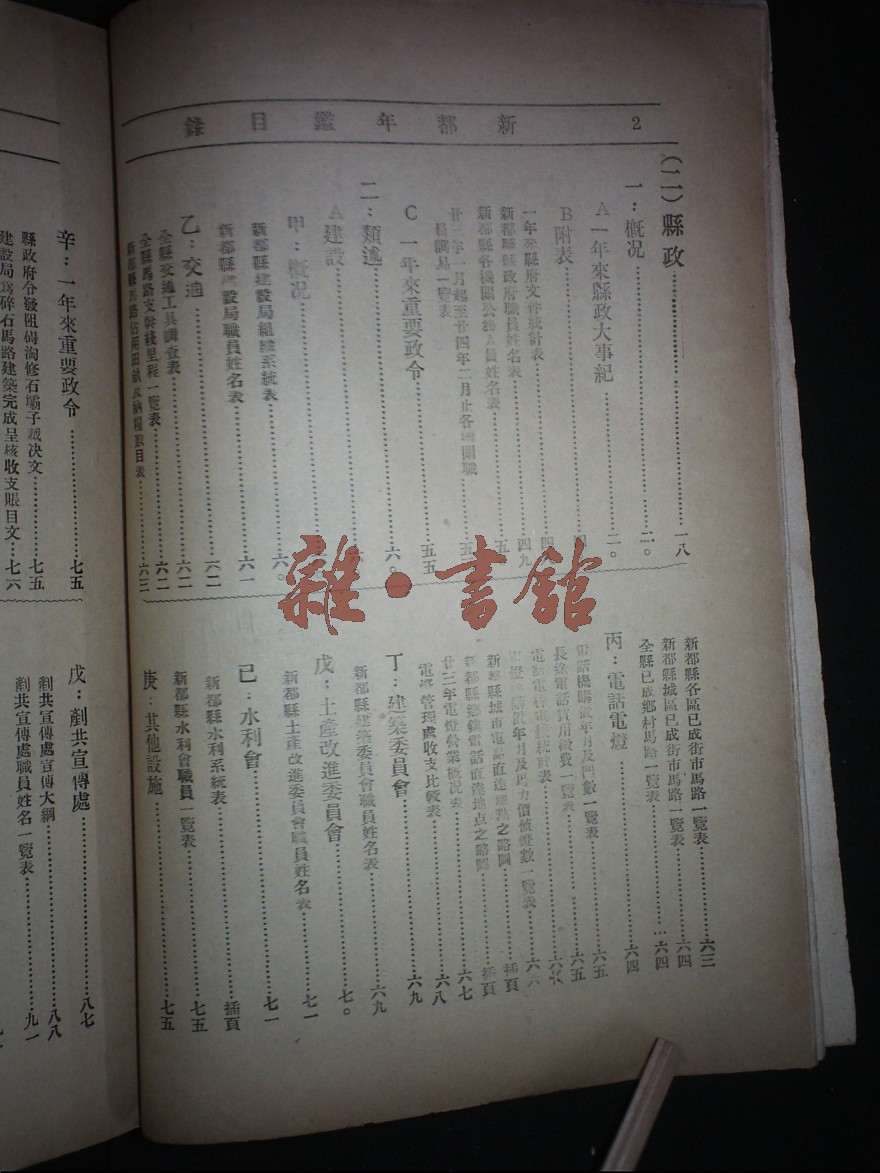 新都年鑑目錄 2
(二)縣政……一八
一:概況……二〇
A一年來縣政大事紀……二〇
B附表……四
一年來縣府文件統計表……四
新都縣縣政府職員姓名表……四九
新都縣各機關公務人員姓名表……五
廿三年一月起至廿四年二月止各機關職員調易一覽表……五
C一年來重要政令……五五
二:類述……六〇
A建設
甲:概況……六〇
新都縣建設局組織系統表……六〇
新都縣建設局職員姓名表……六一
乙:交通……六二
全縣交通工具調查表……六二
全縣馬路支幹綫里程一覽表……六二
新都縣馬路佔用田畝及納糧數目表……六三
新都縣各區已成街市馬路一覽表……六三
新都縣城區已成街市馬路一覽表……六四
全縣已成鄉村馬路一覽表……六四
丙:電話電燈……六四
電話機購置年月及門數一覽表……六五
長途電話費用徵費一覽表……六五
新都縣城市電話直達地點之略圖……插頁
新都縣鄉鎮電話直達地点之略圖……插頁
廿三年電燈營業概况表……六七
電燈管理處收支比較表……六八
丁:建築委員會……六九
新都縣建築委員會職員姓名表……六九
戊:土產改進委員會……七〇
新都縣土產改進委員會職員姓名表……七一
己:水利會……七一
新都縣水利系統表……插頁
新都縣水利會職員一覽表……七五
庚:其他設施……七五
辛:一年來重要政令……七五
縣政府令發阻碍淘修石壩子裁決文……七五
建設局爲碎石馬路建築完成呈核收支賬目文……七六
戊:剷共宣傳處……八七
剷共宣傳處宣傳大綱……八八
剷共宣傳處職員姓名一覽表……九一
雜·書館